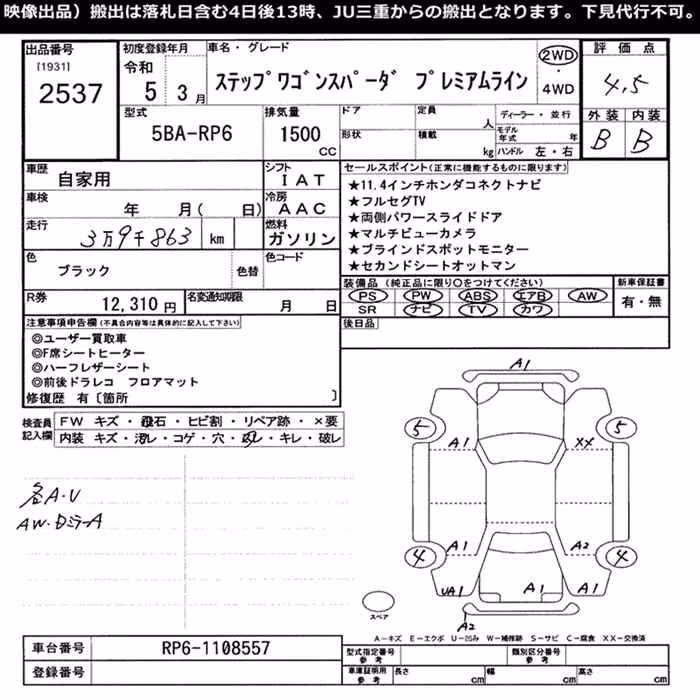 映像出品）搬出は落札日含む4日後13時、JU三重からの搬出となります。下見代行不可。
出品番号
[1931]
2537
初度登録年月
令和
5 3月
車名・グレード
ステップワゴンスパーダ プレミアムライン
2WD
・
4WD
評価点
4.5
外装 内装
B B
型式
5BA-RP6
排気量
1500
CC
ドア
形状
定員
人
積載
kg
ディーラー・並行
モデル年式
年
ハンドル 左・右
車歴
自家用
シフト
IAT
車検
年 月( 日)
冷房
AAC
走行
3万9千863 km
燃料
ガソリン
色
ブラック
色替
色コード
R券
12,310円
名変通知期限
月 日
セールスポイント(正常に機能するものに限ります)
★11.4インチホンダコネクトナビ
★フルセグTV
★両側パワースライドドア
★マルチビューカメラ
★ブラインドスポットモニター
★セカンドシートオットマン
装備品(純正品に限り○をつけてください)
PS PW ABS エアB AW
SR ナビ TV カワ
新車保証書
有・無
後日品
注意事項申告欄(不具合内容等は具体的に記入して下さい)
◎ユーザー買取車
◎F席シートヒーター
◎ハーフレザーシート
◎前後ドラレコ フロアマット
修復歴 有〔箇所 〕
検査員
記入欄
FW キズ・飛石・ヒビ割・リペア跡・×要
内装 キズ・汚レ・コゲ・穴・ ・キレ・破レ
各A・U
AW・Dミラ-A
A1
5
5
A1
XX
A1
A2
4
4
UA1
A1
A1
A1
A2
スペア
A－キズ E－エクボ U－凹み W－補修跡 S－サビ C－腐食 XX－交換済
車台番号
RP6-1108557
登録番号
型式指定番号
参考
類別区分番号
参考
車庫証明用
参考
長さ cm
幅 cm
高さ cm